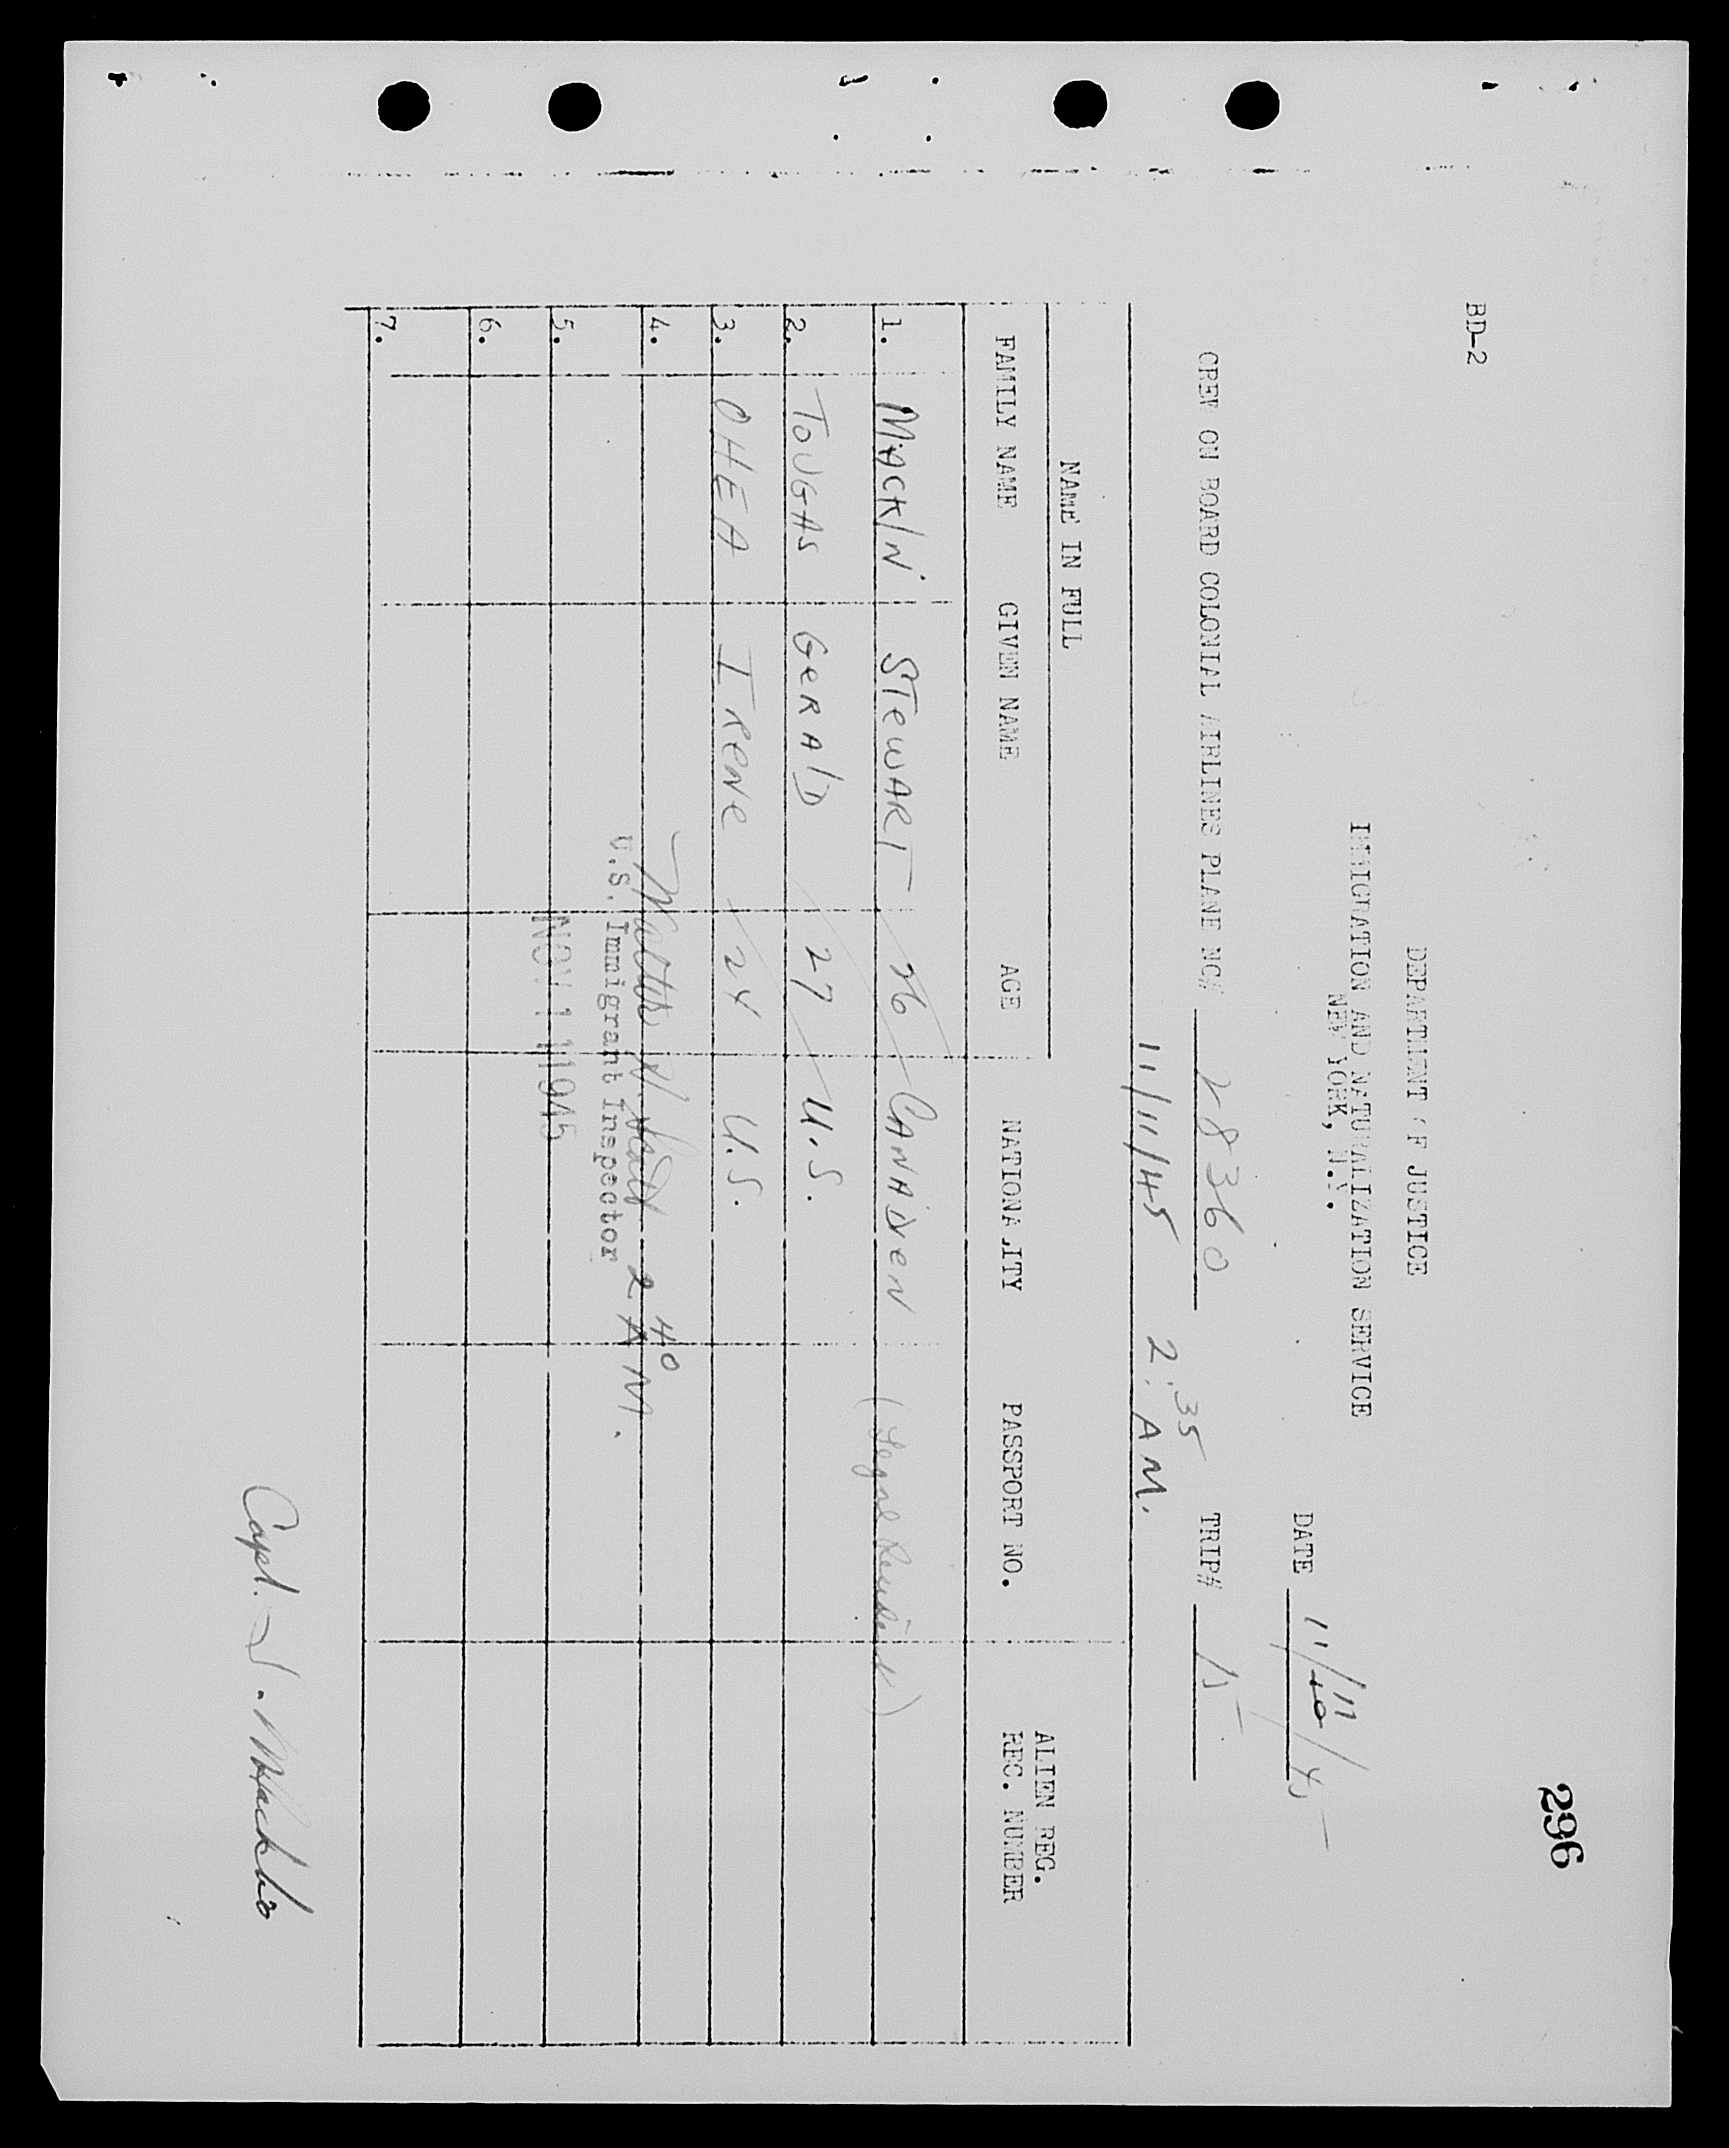 296
BD-2
DEPARTMENT OF JUSTICE
IMMIGRATION AND NATURALIZATION SERVICE
NEW YORK, N.Y.
DATE 11/11/45
CREW ON BOARD COLONIAL AIRLINES PLANE NC# 28360 TRIP# 15
11/11/45 2:35 AM.
NAME IN FULL
ALIEN REG.
FAMILY NAME GIVEN NAME AGE NATIONALITY PASSPORT NO. REC. NUMBER
1. MACKIN STEWART 26 CANADIEN (Legal Resident)
2. TOUGAS GERALD 27 U.S.
3. OHEA IRENE 24 U.S.
4. Walter 2 40 AM.
U.S. Immigrant Inspector
5. NOV 11 1945
6.
7.
Capt. S. Mackin